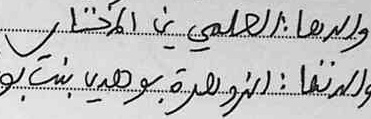 والدها: العلمي بن المختار
والدتها: الزوهرة بوهدي بنت بو